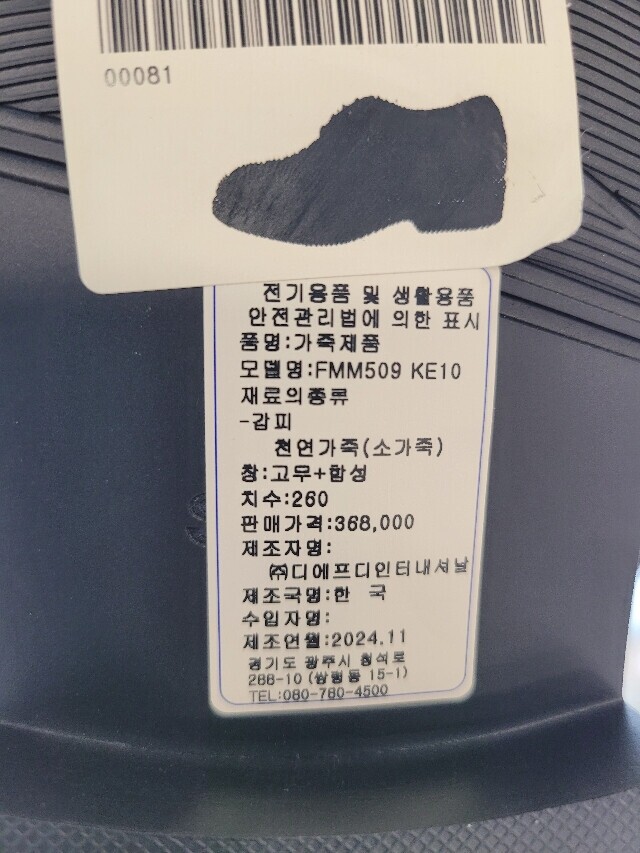 00081
전기용품 및 생활용품
안전관리법에 의한 표시
품명:가죽제품
모델명:FMM509 KE10
재료의종류
-감피
천연가죽(소가죽)
창:고무+합성
치수:260
판매가격:368,000
제조자명:
㈜디에프디인터내셔날
제조국명:한 국
수입자명:
제조연월:2024.11
경기도 광주시 청석로
288-10 (쌍령동 15-1)
TEL:080-780-4500